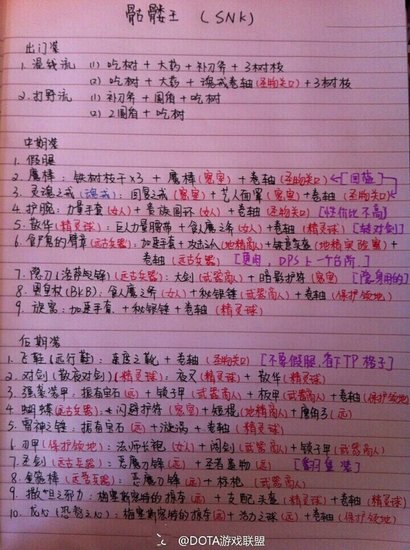 骷髅王 (SNK)
出门装
1. 混线流 (1) 吃树 + 大药 + 补刀斧 + 3树枝
(2) 吃树 + 大药 + 魂戒卷轴(圣物关口) + 3树枝
2. 打野流 (1) 补刀斧 + 圆盾 + 吃树
(2) 2圆盾 + 吃树
中期装
1. 假腿
2. 魔棒: 铁树枝干x3 + 魔棒(密室) + 卷轴(圣物关口) [回蓝]
3. 灵魂之戒(魂戒): 回复之戒(密室) + 艺人面罩(密室) + 卷轴(圣物关口)
4. 护腕: 力量手套(女人) + 贵族圆环(女人) + 卷轴(圣物关口) [性价比不高]
5. 散华(精灵球): 巨人力量腰带 + 食人魔之斧(女人) + 卷轴(精灵球) [转对剑]
6. 食尸鬼的臂章(远古兵器): 加速手套 + 攻击之爪(地精商人) + 铁意头盔(地精实验室) +
卷轴(远古兵器) [更肉, DPS上一个台阶]
7. 隐刀(洛萨之锋)(远古兵器): 大剑(武器商人) + 暗影护符(密室) [隐身用的]
8. 黑皇杖(BKB): 食人魔之斧(女人) + 秘银锤(武器商人) + 卷轴(保护领地)
9. 漩涡: 加速手套 + 秘银锤 + 卷轴(精灵球)
后期装
1. 飞鞋(远行鞋): 速度之靴 + 卷轴(圣物关口) [不要假腿, 省下TP格子]
2. 对剑(散夜对剑)(精灵球): 夜叉(精灵球) + 散华(精灵球)
3. 强袭装甲: 振奋宝石(远) + 锁子甲(武器商人) + 板甲(武器商人) + 卷轴(保护领地)
4. 蝴蝶(远古兵器): 闪避护符(密室) + 短棍(地精商人) + 鹰角弓(远)
5. 雷神之锤: 振奋宝石(远) + 漩涡 + 卷轴(精灵球)
6. 刃甲(保护领地): 法师长袍(女人) + 阔剑(武器商人) + 锁子甲(武器商人)
7. 圣剑(远古兵器): 恶魔刀锋(远) + 圣者遗物(远) [翻身装]
8. 金箍棒(远古兵器): 恶魔刀锋(远) + 标枪(武器商人)
9. 撒旦之邪力: 梅塞斯密特的掠夺(远) + 支配头盔(精灵球) + 卷轴(精灵球)
10. 龙心(恐鳌之心): 梅塞斯密特的掠夺(远) + 活力之球(远) + 卷轴(保护领地)
@DOTA游戏联盟